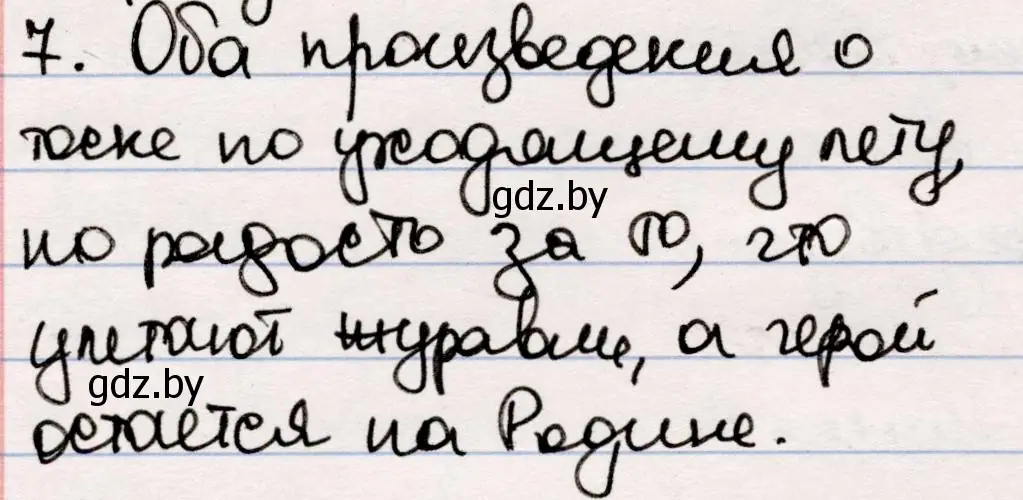 7. Оба произведения о
тоске по уходящему лету,
но радость за то, что
gdz.by
улетают журавли, а герой
gdz.by
остаётся на Родине.